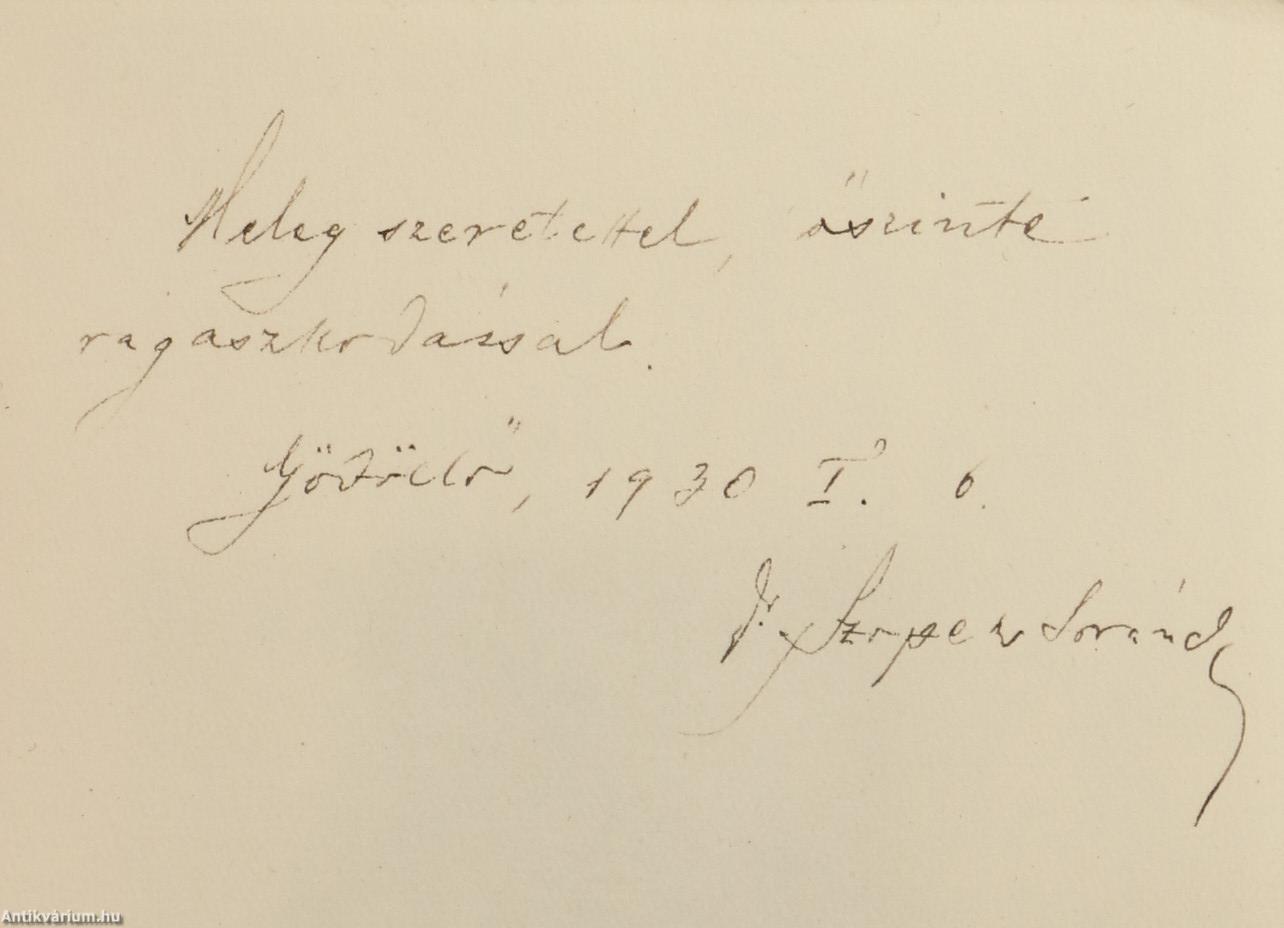 Meleg szeretettel, őszinte
ragaszkodással.
Gödöllő, 1930 I. 6.
Dr Lóránd
Antikvárium.hu